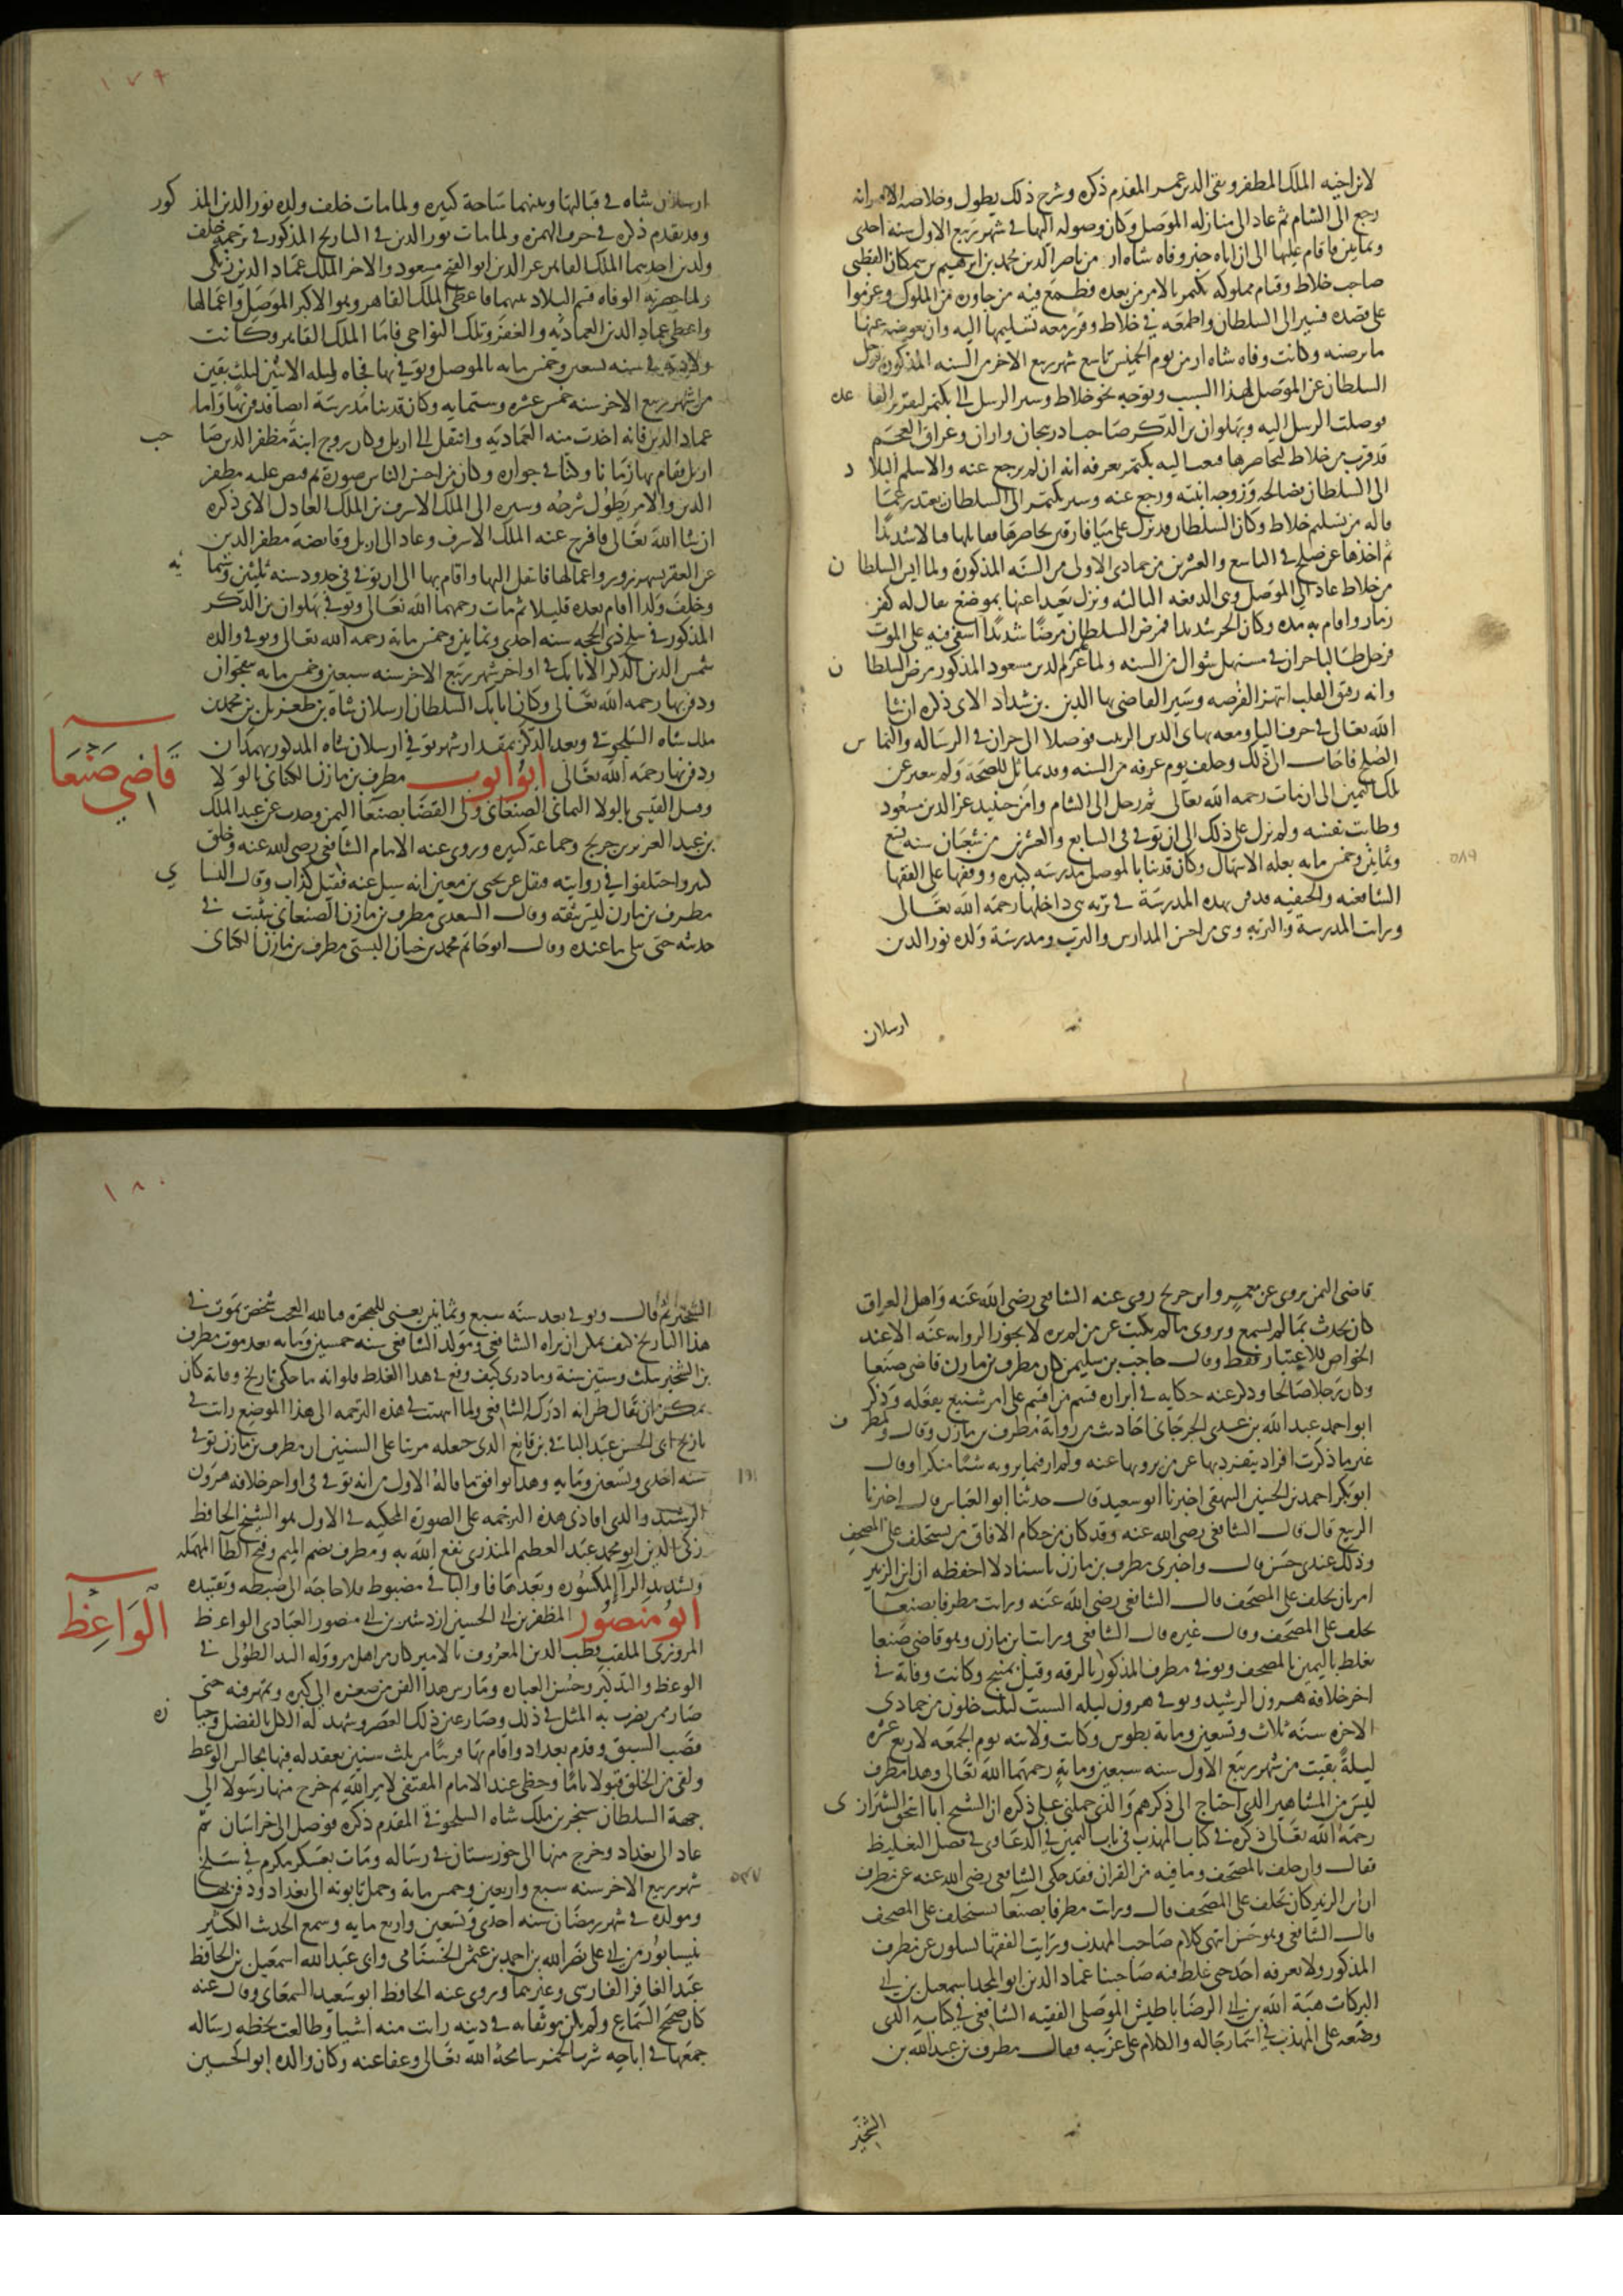 لابن اخيه الملك المظفر تقي الدين عمر المقدم ذكره وشرح ذلك يطول وخلاصه الامر انه
رجع الى الشام ثم عاد الى منازله الموصل وكان وصوله اليها في شهر ربيع الاول سنه احدى
وثمانين فاقام عليها الى ان اتاه خبر وفاه شاه ارمن ناصر الدين محمد بن ابرهيم بن سكمان القطبى
صاحب خلاط وقيام مملوكه بكتمر بالامر من بعده فطمع فيه من جاوره من الملوك وعزموا
على قصده فسير الى السلطان واطمعه في خلاط وقرر معه تسليمها اليه وان يعوضه عنها
ما يرضيه وكانت وفاه شاه ارمن يوم الخميس تاسع شهر ربيع الاخر من السنه المذكوره فرحل
السلطان عن الموصل لهذا السبب وتوجه نحو خلاط وسير الرسل الى بكتمر لتقرير القا عده
فوصلت الرسل اليه وبهلوان بن الدكز صاحب ادربيجان واران وعراق العجم
قد قرب من خلاط ليحاصرها فبعث اليه بكتمر يعرفه انه ان لم يرجع عنه والا سلم البلا د
الى السلطان فصالحه وزوجه ابنته ورجع عنه وسير بكتمر الى السلطان يعتذر عما
قاله من تسليم خلاط وكان السلطان قد نزل على ميافارقين يحاصرها فقاتلها قتالا شديدا
ثم اخذها عن صلح في التاسع والعشرين من جمادى الاولى من السنه المذكورة ولما ايس السلطا ن
من خلاط عاد الى الموصل وهى الدفعه الثالثه ونزل بعيدا عنها بموضع يقال له كفر
زمار واقام به مده وكان الحر شديدا فمرض السلطان مرضا شديدا اشفى فيه على الموت
فرحل طالبا حران في مستهل شوال من السنه ولما علم عز الدين مسعود المذكور مرض السلطا ن
وانه رقيق القلب انتهز الفرصه وسير القاضى بها الدين بن شداد الاتى ذكره ان شا
الله تعالى في حرف اليا ومعه بهاى الدين الربيب فوصلا الى حران في الرساله والتما س
الصلح فاجاب الى ذلك وحلف يوم عرفه من السنه وقد تماثل للصحة ولم يتغير عن
تلك اليمين الى ان مات رحمه الله تعالى ثم رحل الى الشام وامن حينيذ عز الدين مسعود
وطابت نفسه ولم يزل على ذلك الى ان توفى في السابع والعشرين من شعبان سنه تسع
وثمانين وخمس مايه بعله الاسهال وكان قد بنا بالموصل مدرسه كبيره ووقفها على الفقها
الشافعيه والحنفيه فدفن بهذه المدرسة في تربه هى داخلها رحمه الله تعالى
ورايت المدرسة والتربه وهى من احسن المدارس والترب ومدرسة ولده نور الدين
ارسلان
٥٨٩
١٧٩
ارسلان شاه في قبالتها وبينهما ساحة كبيره ولما مات خلف ولده نور الدين المذ كور
وقد تقدم ذكره في حرف الهمزه ولما مات نور الدين في التاريخ المذكور في ترجمته خلف
ولدين احدهما الملك القاهر عز الدين ابو الفتح مسعود والاخر الملك عماد الدين زنكى
ولما حضرته الوفاه قسم البلاد بينهما فاعطى الملك القاهر وهو الاكبر الموصل واعمالها
واعطى عماد الدين العماديه والعقر وتلك النواحى فاما الملك القاهر وكانت
ولادته في سنه تسعين وخمس مايه بالموصل وتوفي بها فجاه ليله الاثنين لثلث بقين
من شهر ربيع الاخر سنه خمس عشره وستمايه وكان قد بنا مدرسة ايضا فدفن بها واما
عماد الدين فانه اخذت منه العماديه وانتقل الى اربل وكان تزوج ابنة مظفر الدين صا حب
اربل فاقام بها زمانا وكنا في جواره وكان من احسن الناس صورة ثم قبض عليه مظفر
الدين والامر يطول شرحه وسيره الى الملك الاشرف بن الملك العادل الاتى ذكره
ان شا الله تعالى فافرج عنه الملك الاشرف وعاد الى اربل وقايضه مظفر الدين
عن العقر بشهرزور واعمالها فانتقل اليها واقام بها الى ان توفى في حدود سنه ثلثين وستما يه
وخلف ولدا اقام بعده قليلا ثم مات رحمهما الله تعالى وتوفي بهلوان بن الدكز
المذكور في سلخ ذى الحجه سنه احدى وثمانين وخمس ماية رحمه الله تعالى وتوفى والده
شمس الدين الدكز الاتابك في اواخر شهر ربيع الاخر سنه سبعين وخمس مايه بنخجوان
ودفن بها رحمه الله تعالى وكان اتابك السلطان ارسلان شاه بن طغربل بن محمد بن
ملك شاه السلجوقى وبعد الدكز بمقدار شهر توفي ارسلان شاه المذكور بهمدان
ودفن بها رحمه الله تعالى ابو ايوب مطرف بن مازن الكنانى بالولا
قاضي صنعا
وقيل القيسى بالولا اليمانى الصنعانى ولى القضا بصنعا اليمن وحدث عن عبد الملك
بن عبد العزيز بن جريج وجماعة كبيره وروى عنه الامام الشافعى رضى الله عنه وخلق
كثير واختلفوا في روايته فنقل عن يحيى بن معين انه سيل عنه فقيل كذاب وقال النسا ي
مطرف بن مازن ليس بثقه وقال السعدى مطرف بن مازن الصنعانى يتثبت في
حديثه حتى يبلى ما عنده وقال ابو حاتم محمد بن حبان البستى مطرف بن مازن الكنانى
قاضى اليمن يروى عن معمر وابن جريج روى عنه الشافعى رضى الله عنه واهل العراق
كان يحدث بما لم يسمع ويروى ما لم يكتب عن من لم يره لا يجوز الروايه عنه الا عند
الخواص للاعتبار فقط وقال حاجب بن سليمن كان مطرف بن مازن قاضى صنعا
وكان رجلا صالحا وذكر عنه حكايه في ابراره قسم من اقسم على امر شنيع يفعله وذكر
ابو احمد عبد الله بن عدى الجرجانى احاديث من رواية مطرف بن مازن وقال ولمطر ف
غير ما ذكرت افراد يتفرد بها عن من يرويها عنه ولم ار فيما يرويه شيا منكرا وقال
ابو بكر احمد بن الحسين البيهقى اخبرنا ابو سعيد قال حدثنا ابو العباس قال اخبرنا
الربيع قال قال الشافعى رضى الله عنه وقد كان من حكام الافاق من يستحلف على المصحف
وذلك عندى حسن قال واخبرنى مطرف بن مازن باسناد لا احفظه ان ابن الزبير
امر بان يحلف على المصحف قال الشافعى رضى الله عنه ورايت مطرفا بصنعا
يحلف على المصحف وقال غيره قال الشافعى ورايت ابن مازن وهو قاضى صنعا
يغلظ باليمين بالمصحف وتوفى مطرف المذكور بالرقه وقيل بمنبج وكانت وفاته في
اخر خلافة هرون الرشيد وتوفى هرون ليله السبت لثلث خلون من جمادى
الاخره سنة ثلاث وتسعين وماية بطوس وكانت ولايته يوم الجمعه لاربع عشره
ليلة بقيت من شهر ربيع الاول سنه سبعين وماية رحمهما الله تعالى وهذا مطرف
ليس من المشاهير الذى احتاج الى ذكرهم والذى حملنى على ذكره ان الشيخ ابا اسحق الشيراز ى
رحمه الله تعالى ذكره في كتاب المهذب في باب اليمين في الدعاوى في فصل التغليظ
فقال وان حلف بالمصحف وما فيه من القران فقد حكى الشافعى رضى الله عنه عن مطرف
ان ابن الزبير كان يحلف على المصحف قال ورايت مطرفا بصنعا يستحلف على المصحف
قال الشافعى وهو حسن انتهى كلام صاحب المهذب ورايت الفقها يسلون عن مطرف
المذكور ولا يعرفه احد حتى غلط فيه صاحبنا عماد الدين ابو المجد اسمعيل بن ابى
البركات هبة الله بن ابى الرضا باطيش الموصلى الفقيه الشافعى في كتابه الذى
وضعه على المهذب في اسما رجاله والكلام على غريبه فقال مطرف بن عبد الله بن
الشخير
١٨٠
الشخير ثم قال وتوفى بعد سنه سبع وثمانين يعنى للهجره فيا لله العجب شخص يموت في
هذا التاريخ كيف يمكن ان يراه الشافعى ومولد الشافعى سنه خمسين ومايه بعد موت مطرف
بن الشخير بثلث وستين سنة وما ادرى كيف وقع في هذا الغلط فلو انه ما حكى تاريخ وفاته كان
يمكن ان يقال ظن انه ادرك الشافعى ولما انتهيت في هذه الترجمه الى هذا الموضع رايت في
تاريخ ابى الحسن عبد الباقى بن قانع الذى جعله مرتبا على السنين ان مطرف بن مازن توفى
سنه احدى وتسعين ومايه وهذا يوافق ما قاله الاول من انه توفى في اواخر خلافه هرون
١٩١
الرشيد والذى افادنى هذه الترجمه على الصورة المحكيه في الاول هو الشيخ الحافظ
زكى الدين ابو محمد عبد العظيم المنذرى نفع الله به ومطرف بضم الميم وفتح الطا المهمله
وتشديد الرا المكسوره وبعدها فا والباقى مضبوط فلا حاجة الى ضبطه وتقييده
ابو منصور المظفر بن ابى الحسين اردشير بن ابى منصور العبادى الواعظ
الواعظ
المروزى الملقب قطب الدين المعروف بالامير كان من اهل مرو وله اليد الطولى في
الوعظ والتذكير وحسن العباره ومارس هذا الفن من صغره الى كبره ومهر فيه حتى
صار ممن يضرب به المثل في ذلك وصار عين ذلك العصر وشهد له الكل بالفضل وحيا زه
قصب السبق وقدم بغداد واقام بها قريبا من ثلث سنين يعقد له فيها مجالس الوعظ
ولقى من الخلق قبولا تاما وحظى عند الامام المقتفى لامر الله ثم خرج منها رسولا الى
جهة السلطان سنجر بن ملك شاه السلجوقى المقدم ذكره فوصل الى خراسان ثم
عاد الى بغداد وخرج منها الى خوزستان في رساله ومات بعسكر مكرم في سلخ
شهر ربيع الاخر سنه سبع واربعين وخمس ماية وحمل تابوته الى بغداد ودفن بها
٥٤٧
ومولده في شهر رمضان سنه احدى وتسعين واربع مايه وسمع الحديث الكثير
بنيسابور من ابى على نصر الله بن احمد بن عثمن الخشنامى وابى عبد الله اسمعيل بن الحافظ
عبد الغافر الفارسى وغيرهما وروى عنه الحافظ ابو سعيد السمعانى وقال عنه
كان صحيح السماع ولم يكن موثقا به في دينه رايت منه اشيا وطالعت بخطه رساله
جمعها في اباحه شرب الخمر سامحه الله تعالى وعفا عنه وكان والده ابو الحسين